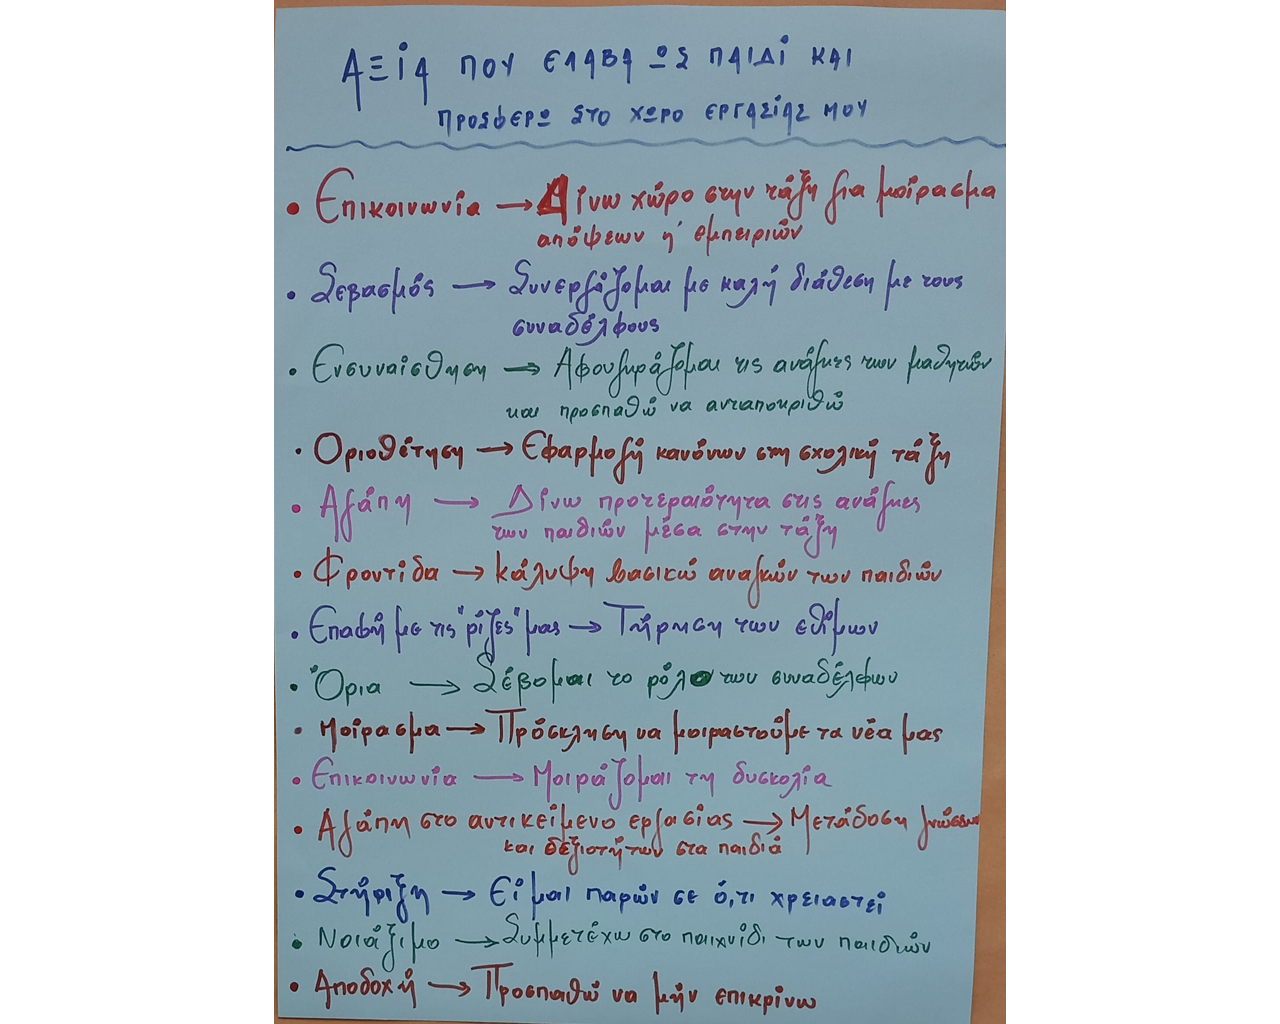 ΑΞίΑ ΠΟΥ ΕΛΑΒΑ ΩΣ ΠΑΙΔί ΚΑΙ
ΠΡΟΣΦΕΡΩ ΣΤΟ ΧΩΡΟ ΕΡΓΑΣίΑΣ ΜΟΥ
• Επικοινωνία → Δίνω χώρο στην τάξη για μοίρασμα
απόψεων ή εμπειριών
• Σεβασμός → Συνεργάζομαι με καλή διάθεση με τους
συναδέλφους
• Ενσυναίσθηση → Αφουγκράζομαι τις ανάγκες των μαθητών
και προσπαθώ να ανταποκριθώ
• Οριοθέτηση → Εφαρμογή κανόνων στη σχολική τάξη
• Αγάπη → Δίνω προτεραιότητα στις ανάγκες
των παιδιών μέσα στην τάξη
• Φροντίδα → κάλυψη βασικώ αναγκών των παιδιών
• Επαφή με τις "ρίζες" μας → Τήρηση των εθίμων
• Όρια → Σέβομαι το ρόλο των συναδέλφων
• Μοίρασμα → Πρόσκληση να μοιραστούμε τα νέα μας
• Επικοινωνία → Μοιράζομαι τη δυσκολία
• Αγάπη στο αντικείμενο εργασίας → Μετάδοση γνώσεων
και δεξιοτήτων στα παιδιά
• Στήριξη → Είμαι παρών σε ό,τι χρειαστεί
• Νοιάξιμο → Συμμετέχω στο παιχνίδι των παιδιών
• Αποδοχή → Προσπαθώ να μην επικρίνω